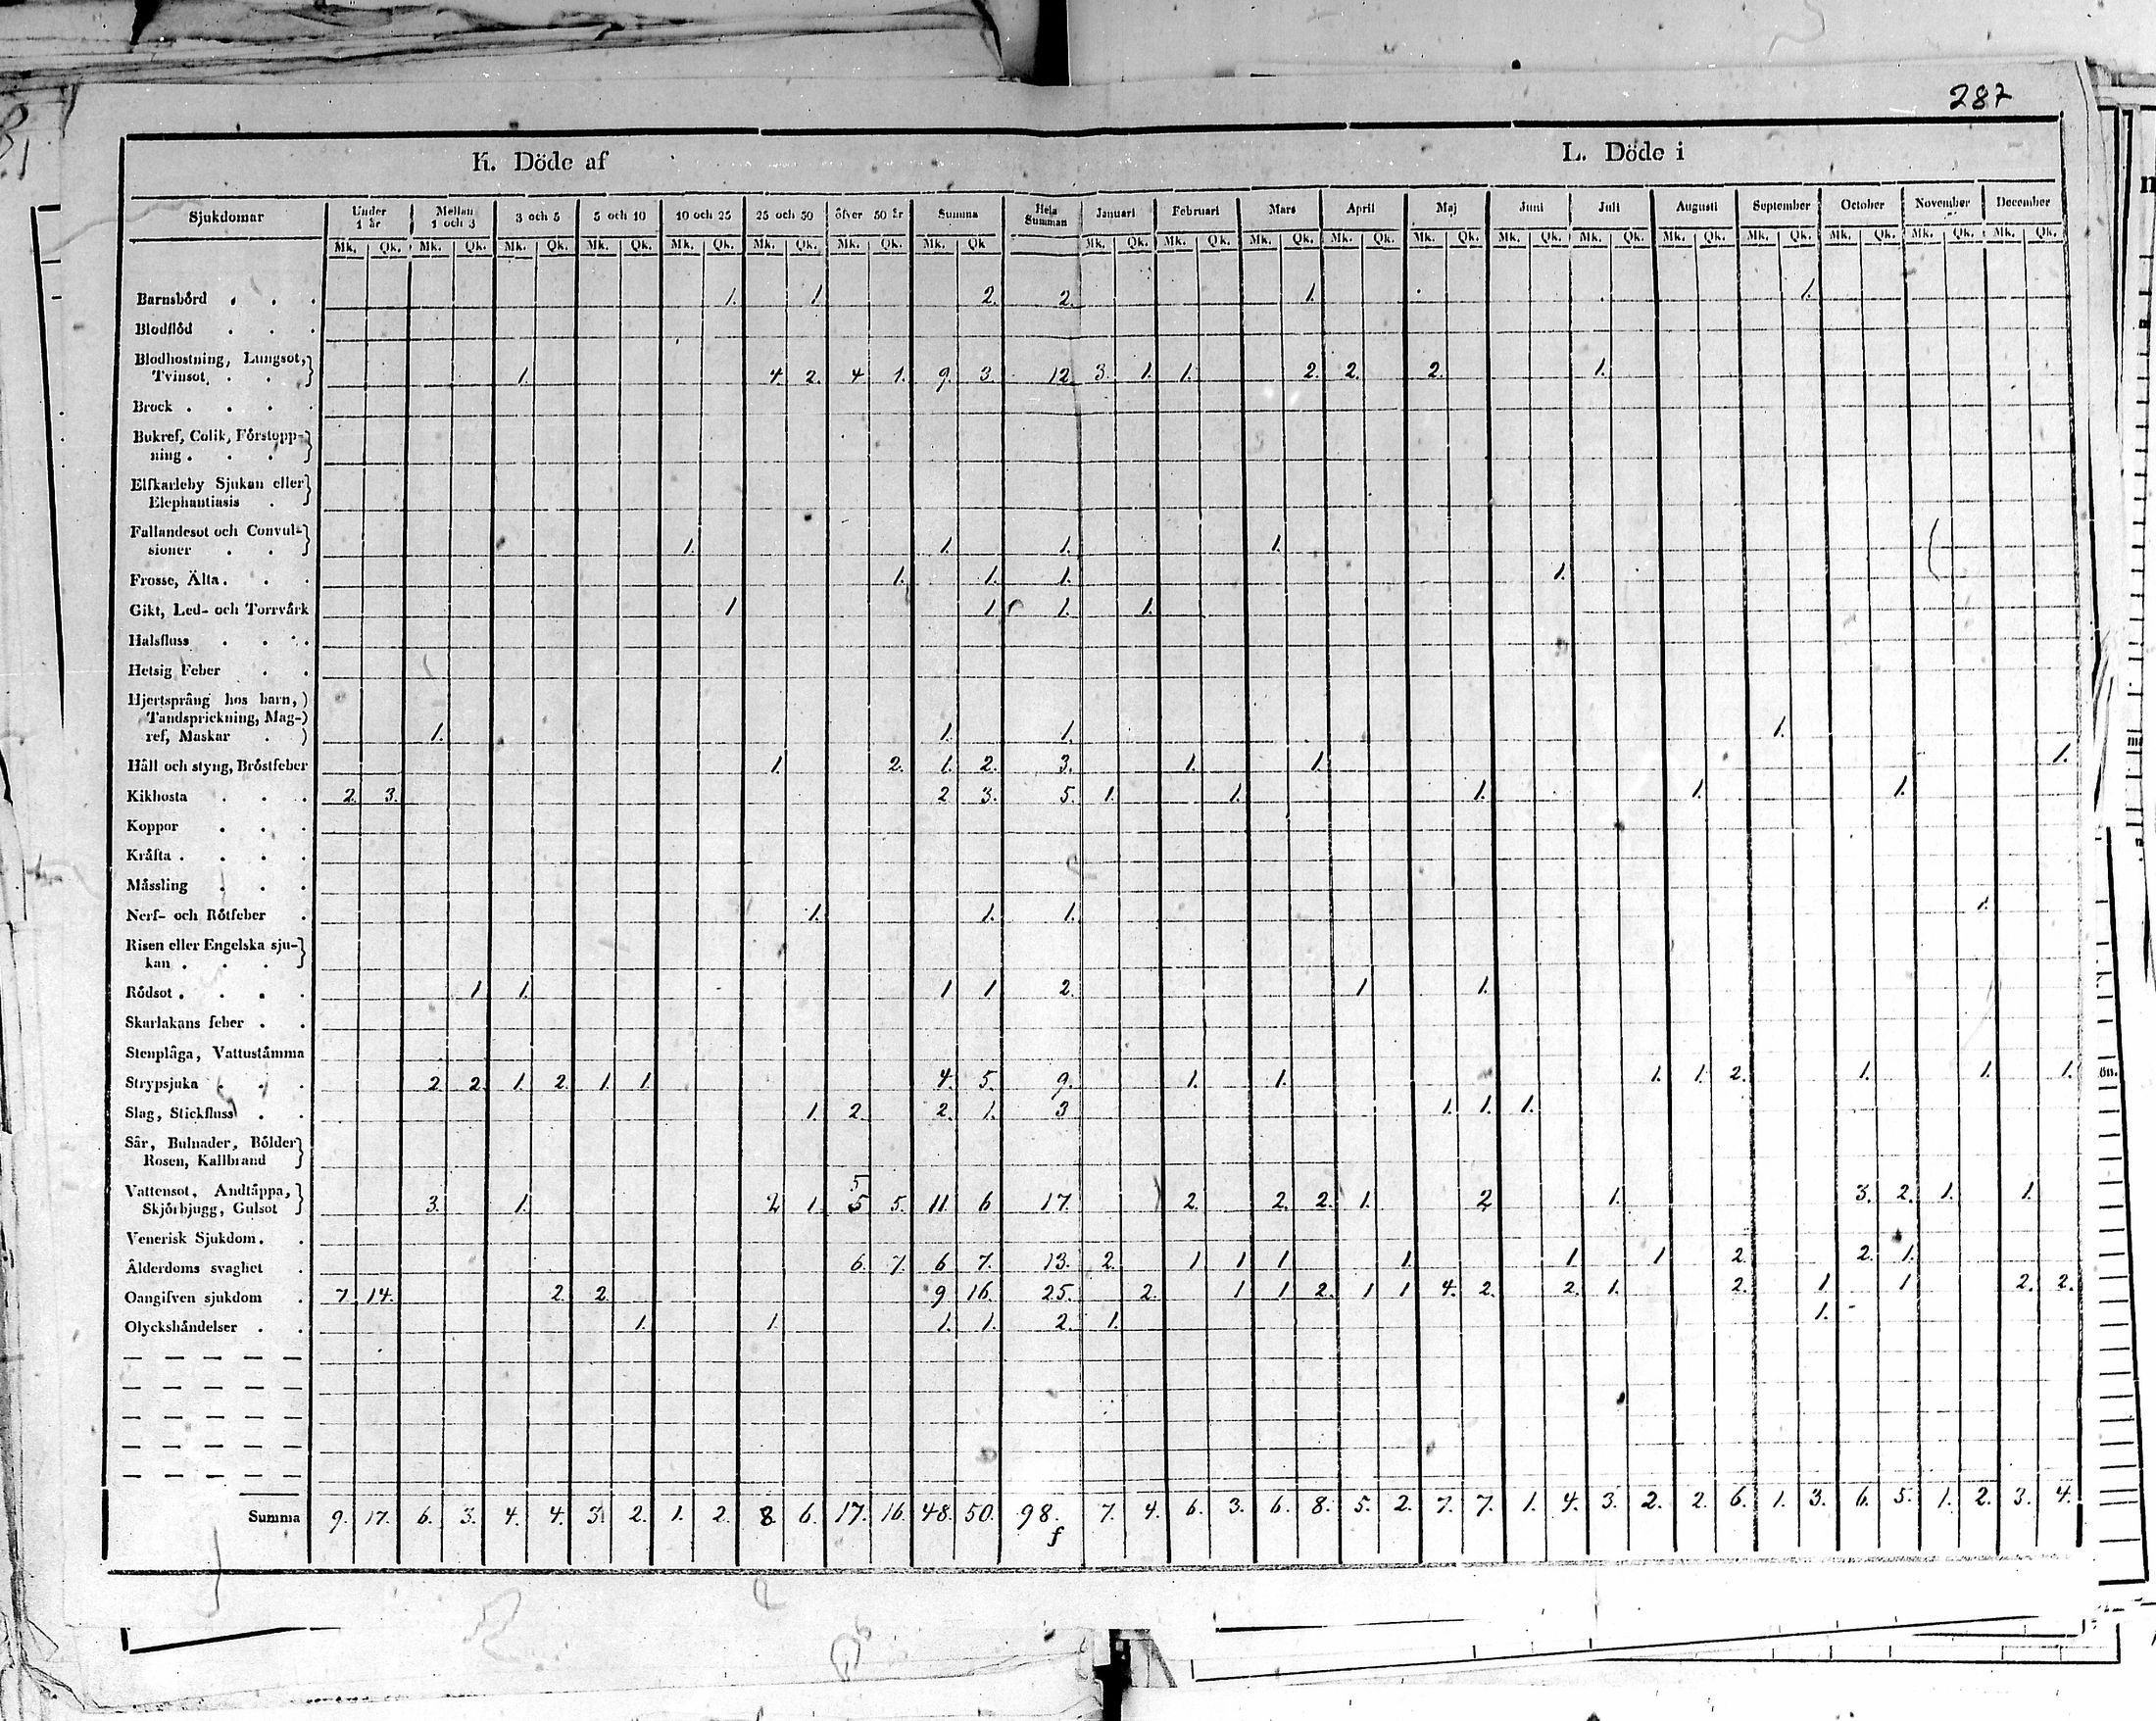 287
K. Döde af
L. Döde i
Sjukdomar Under 1 år Mellan 1 och 3 3 och 5 5 och 10 10 och 25 25 och 50 öfver 50 år Summa Hela Summan Januari Februari Mars April Maj Juni Juli Augusti September October November December
Mk. Qk. Mk. Qk. Mk. Qk. Mk. Qk. Mk. Qk. Mk. Qk. Mk. Qk. Mk. Qk Mk. Qk. Mk. Qk. Mk. Qk. Mk. Qk. Mk. Qk. Mk. Qk. Mk. Qk. Mk. Qk. Mk. Qk. Mk. Qk. Mk. Qk. Mk. Qk.
Barnsbörd . . . 1. 1 2. 2. 1. 1.
Blodflöd . . .
Blodhostning, Lungsot,
Tvinsot, . . . 1. 4. 2. 4 1. 9. 3. 12. 3. 1. 1. 2. 2. 2. 1.
Brock . . . .
Bukref, Colik, Förstopp-
ning . . .
Elfkarleby Sjukan eller
Elephantiasis .
Fallandesot och Convul-
sioner . . 1. 1. 1. 1.
Frosse, Älta . . . 1. 1. 1. 1.
Gikt, Led- och Torrvärk 1 1 1. 1.
Halsfluss . . .
Hetsig Feber . .
Hjertsprång hos barn,
Tandsprickning, Mag-
ref, Maskar . 1. 1. 1. 1.
Håll och styng, Bröstfeber 1. 2. 1. 2. 3. 1. 1. 1.
Kikhosta . . . 2. 3. 2 3. 5. 1. 1. 1. 1. 1.
Koppor . . .
Kräfta . . . .
Mässling . . .
Nerf- och Rötfeber . 1. 1. 1. 1.
Risen eller Engelska sju-
kan . . .
Rödsot . . . . 1 1. 1 1 2. 1 1.
Skarlakans feber . .
Stenplåga, Vattustämma
Strypsjuka . . . 2. 2. 1. 2. 1. 1. 4. 5. 9. 1. 1. 1. 1. 2. 1. 1. 1.
Slag, Stickfluss . . 1. 2. 2. 1. 3 1. 1. 1.
Sår, Bulnader, Bölder
Rosen, Kallbrand
Vattensot, Andtäppa, 5
Skjörbjugg, Gulsot 3. 1. 2 1. 5 5. 11. 6 17. 2. 2. 2. 1. 2 1. 3. 2. 1. 1.
Venerisk Sjukdom . .
Ålderdoms svaghet . 6. 7. 6 7. 13. 2. 1 1 1 1. 1 1 2. 2. 1.
Oangifven sjukdom . 7. 14. 2. 2. 9 16. 25. 2. 1 1 2. 1 1 4. 2. 2. 1. 2. 1 1 2. 2.
Olyckshändelser . . 1. 1. 1. 1. 2. 1. 1.
Summa 9. 17. 6. 3. 4. 4. 3. 2. 1. 2. 8. 6. 17. 16. 48. 50. 98. 7. 4. 6. 3. 6. 8. 5. 2. 7. 7. 1. 4. 3. 2. 2. 6. 1. 3. 6. 5. 1. 2. 3. 4.